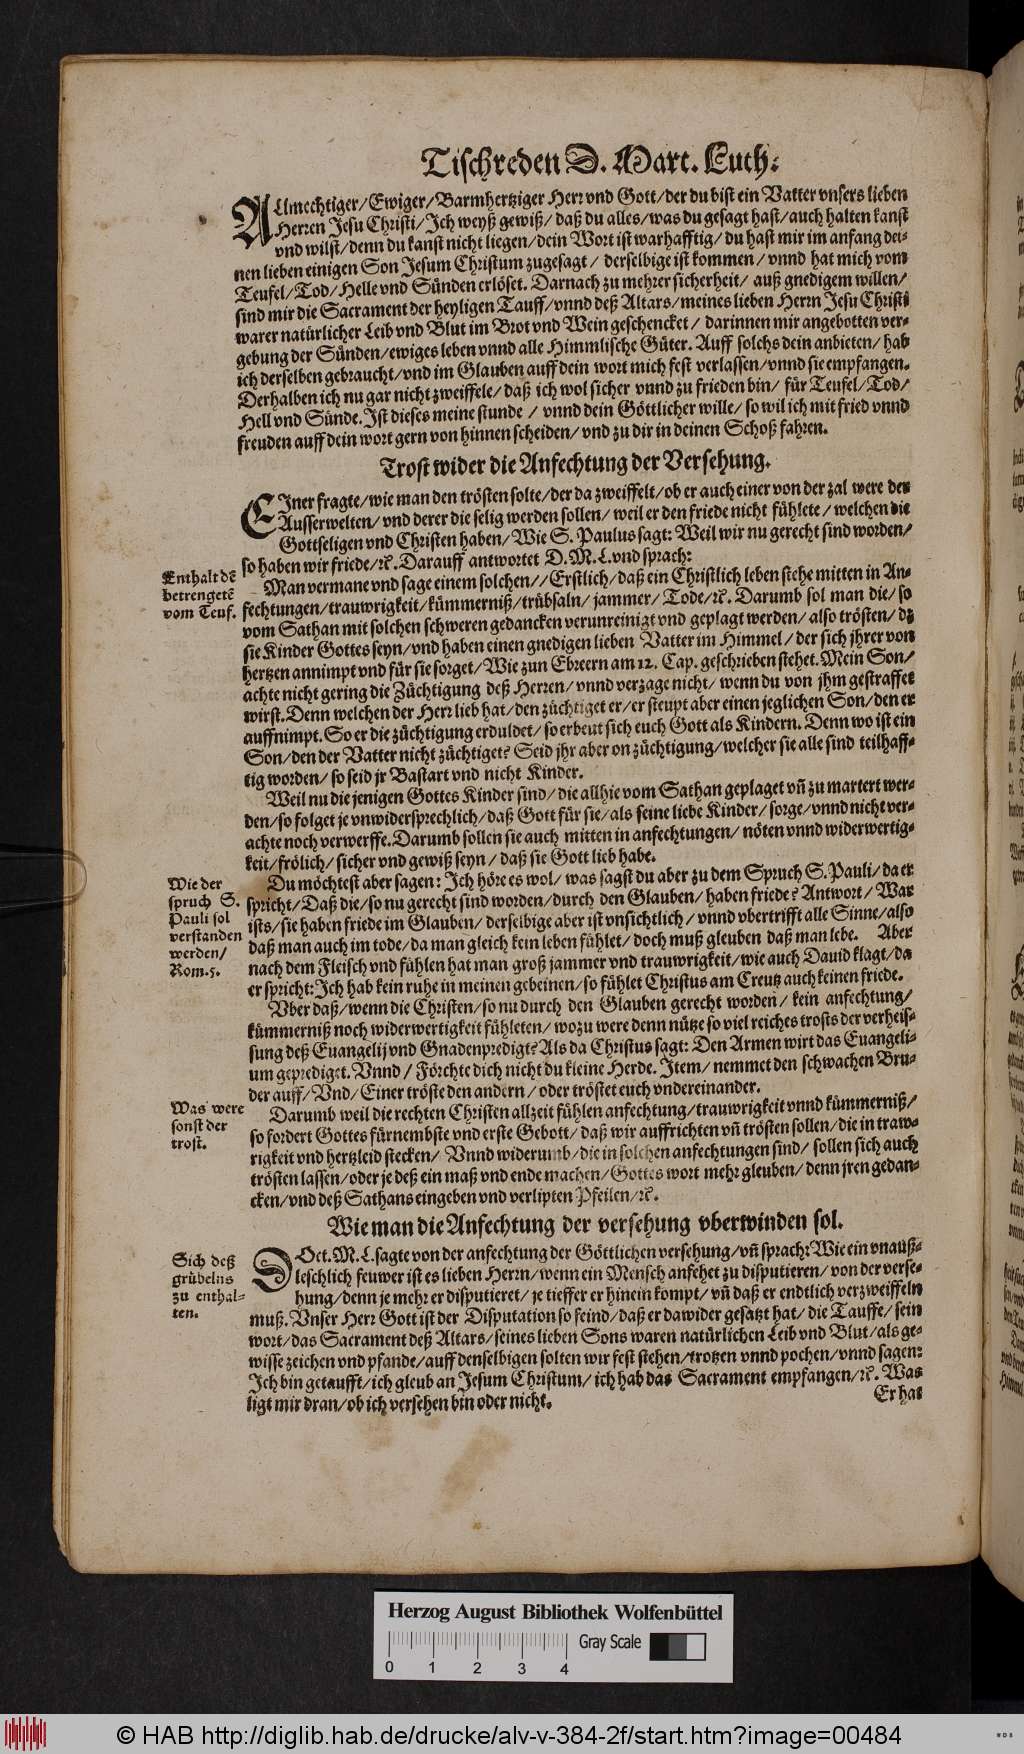 Tischreden D. Mart. Luth:
ALlmechtiger/Ewiger/Barmhertziger Herr vnd Gott/der du bist ein Vatter vnsers lieben
Herren Jesu Christi/Ich weyß gewiß/daß du alles/was du gesagt hast/auch halten kanst
vnd wilst/denn du kanst nicht liegen/dein Wort ist warhafftig/du hast mir im anfang dei-
nen lieben einigen Son Jesum Christum zugesagt/ derselbige ist kommen/ vnnd hat mich vom
Teufel/Tod/Helle vnd Sünden erlöset. Darnach zu mehrer sicherheit/ auß gnedigem willen/
sind mir die Sacrament der heyligen Tauff/vnnd deß Altars/meines lieben Herrn Jesu Christi
warer natürlicher Leib vnd Blut im Brot vnd Wein geschencket/ darinnen mir angebotten ver-
gebung der Sünden/ewiges leben vnnd alle Himmlische Güter. Auff solchs dein anbieten/ hab
ich derselben gebraucht/vnd im Glauben auff dein wort mich fest verlassen/vnnd sie empfangen.
Derhalben ich nu gar nicht zweiffele/daß ich wol sicher vnnd zu frieden bin/ für Teufel/Tod/
Hell vnd Sünde. Ist dieses meine stunde/ vnnd dein Göttlicher wille/ so wil ich mit fried vnnd
freuden auff dein wort gern von hinnen scheiden/ vnd zu dir in deinen Schoß fahren.
Trost wider die Anfechtung der Versehung.
EIner fragte/wie man den trösten solte/der da zweiffelt/ob er auch einer von der zal were der
Ausserwelten/ vnd derer die selig werden sollen/ weil er den friede nicht fühlete/ welchen die
Gottseligen vnd Christen haben/ Wie S. Paulus sagt: Weil wir nu gerecht sind worden/
so haben wir friede/ꝛc. Darauff antwortet D. M. L. vnd sprach:
Enthalt dē
betrengetē
vom Teuf.
Man vermane vnd sage einem solchen//Erstlich/daß ein Christlich leben stehe mitten in An-
fechtungen/trauwrigkeit/kümmerniß/trübsaln/ jammer/ Tode/ꝛc. Darumb sol man die/ so
vom Sathan mit solchen schweren gedancken verunreinigt vnd geplagt werden/ also trösten/ dz
sie Kinder Gottes seyn/vnd haben einen gnedigen lieben Vatter im Himmel/ der sich jhrer von
hertzen annimpt vnd für sie sorget/ Wie zun Ebreern am 12. Cap. geschrieben stehet. Mein Son/
achte nicht gering die Züchtigung deß Herren/ vnnd verzage nicht/ wenn du von jhm gestraffet
wirst. Denn welchen der Herr lieb hat/den züchtiget er/er steupt aber einen jeglichen Son/den er
auffnimpt. So er die züchtigung erduldet/ so erbeut sich euch Gott als Kindern. Denn wo ist ein
Son/den der Vatter nicht züchtiget? Seid jhr aber on züchtigung/welcher sie alle sind teilhaff-
tig worden/ so seid jr Bastart vnd nicht Kinder.
Weil nu die jenigen Gottes Kinder sind/ die allhie vom Sathan geplaget vñ zu martert wer-
den/so folget je vnwidersprechlich/daß Gott für sie/als seine liebe Kinder/ sorge/vnnd nicht ver-
achte noch verwerffe. Darumb sollen sie auch mitten in anfechtungen/ nöten vnnd widerwertig-
keit/frölich/ sicher vnd gewiß seyn/ daß sie Gott lieb habe.
Wie der
spruch S.
Pauli sol
verstanden
werden/
Rom.5.
Du möchtest aber sagen: Ich höre es wol/ was sagst du aber zu dem Spruch S. Pauli/ da er
spricht/ Daß die/ so nu gerecht sind worden/durch den Glauben/ haben friede? Antwort/ War
ists/sie haben friede im Glauben/ derselbige aber ist vnsichtlich/ vnnd vbertrifft alle Sinne/also
daß man auch im tode/da man gleich kein leben fühlet/ doch muß gleuben daß man lebe. Aber
nach dem Fleisch vnd fühlen hat man groß jammer vnd trauwrigkeit/wie auch Dauid klagt/da
er spricht: Ich hab kein ruhe in meinen gebeinen/ so fühlet Christus am Creutz auch keinen friede.
Vber daß/wenn die Christen/so nu durch den Glauben gerecht worden/ kein anfechtung/
kümmerniß noch widerwertigkeit fühleten/ wozu were denn nütze so viel reiches trosts der verheis-
sung deß Euangelij vnd Gnadenpredigt? Als da Christus sagt: Den Armen wirt das Euangeli-
um geprediget. Vnnd/ Förchte dich nicht du kleine Herde. Item/ nemmet den schwachen Bru-
der auff/ Vnd/ Einer tröste den andern/ oder tröstet euch vndereinander.
Was were
sonst der
trost.
Darumb weil die rechten Christen allzeit fühlen anfechtung/trauwrigkeit vnnd kümmerniß/
so fordert Gottes fürnembste vnd erste Gebott/ daß wir auffrichten vñ trösten sollen/die in traw-
rigkeit vnd hertzleid stecken/ Vnnd widerumb/die in solchen anfechtungen sind/ sollen sich auch
trösten lassen/oder je deß ein maß vnd ende machen/ Gottes wort mehr gleuben/ denn jren gedan-
cken/vnd deß Sathans eingeben vnd verlipten Pfeilen/ꝛc.
Wie man die Anfechtung der versehung vberwinden sol.
Sich deß
grübelns
zu enthal-
ten.
DOct. M. L. sagte von der anfechtung der Göttlichen versehung/vñ sprach: Wie ein vnauß-
leschlich feuwer ist es lieben Herrn/wenn ein Mensch anfehet zu disputieren/ von der verse-
hung/denn je mehr er disputieret/ je tieffer er hinein kompt/ vñ daß er endtlich verzweiffeln
muß. Vnser Herr Gott ist der Disputation so feind/daß er dawider gesatzt hat/ die Tauffe/ sein
wort/das Sacrament deß Altars/seines lieben Sons waren natürlichen Leib vnd Blut/als ge-
wisse zeichen vnd pfande/auff denselbigen solten wir fest stehen/trotzen vnnd pochen/vnnd sagen:
Ich bin getaufft/ich gleub an Jesum Christum/ ich hab das Sacrament empfangen/ꝛc. Was
ligt mir dran/ob ich versehen bin oder nicht.
Er hat
Herzog August Bibliothek Wolfenbüttel
Gray Scale
0 1 2 3 4
© HAB http://diglib.hab.de/drucke/alv-v-384-2f/start.htm?image=00484